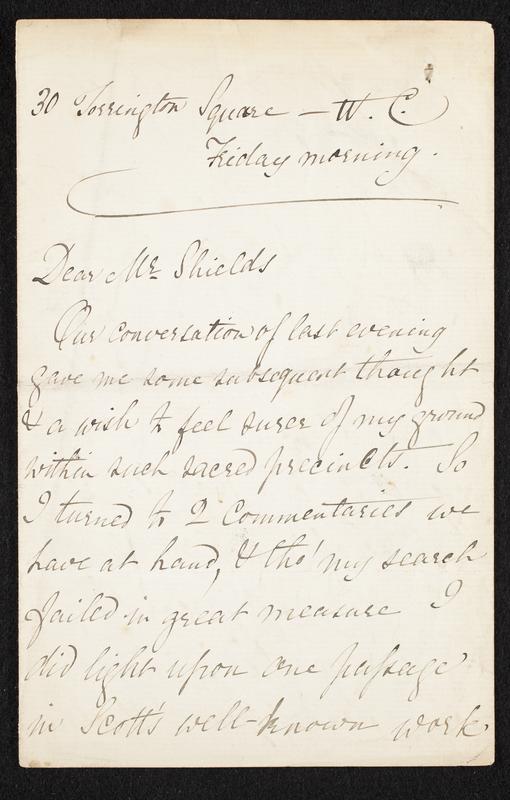 30 Torrington Square — W. C.
Friday morning.
Dear Mr. Shields
Our conversation of last evening
gave me some subsequent thought
& a wish to feel surer of my ground
within such sacred precincts. So
I turned to 2 Commentaries we
have at hand, & tho' my search
failed in great measure I
did light upon one passage
in Scott's well-known work